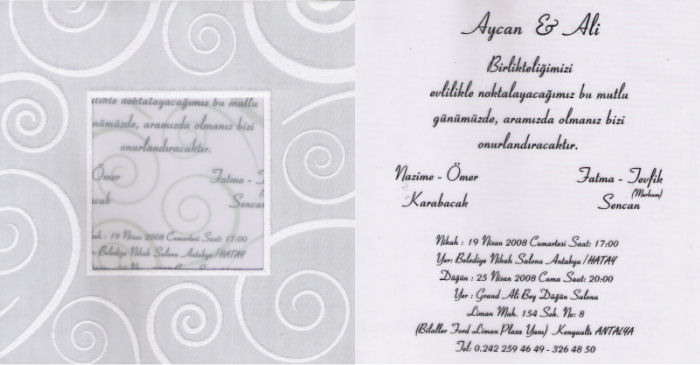 utisinle noktalayacağımız bu mutlu
nümüzde, aramızda olmanız bizi
onurlandıracaktır.
Ömer Fatma - T
abacak Sencan
ah : 19 Nisan 2008 Cumartesi Saat: 17:00
Belediye Nikah Salonu Antakya /HATAY
Aycan & Ali
Birlikteliğimizi
evlilikle noktalayacağımız bu mutlu
günümüzde, aramızda olmanız bizi
onurlandıracaktır.
Nazime - Ömer Fatma - Tevfik
(Merhum)
Karabacak Sencan
Nikah : 19 Nisan 2008 Cumartesi Saat: 17:00
Yer: Belediye Nikah Salonu Antakya /HATAY
Düğün : 25 Nisan 2008 Cuma Saat: 20:00
Yer : Grand Ali Bey Düğün Salonu
Liman Mah. 154 Sok. No: 8
(Bilaller Ford Liman Plaza Yanı) Konyaaltı ANTALYA
Tel: 0.242 259 46 49 - 326 48 50